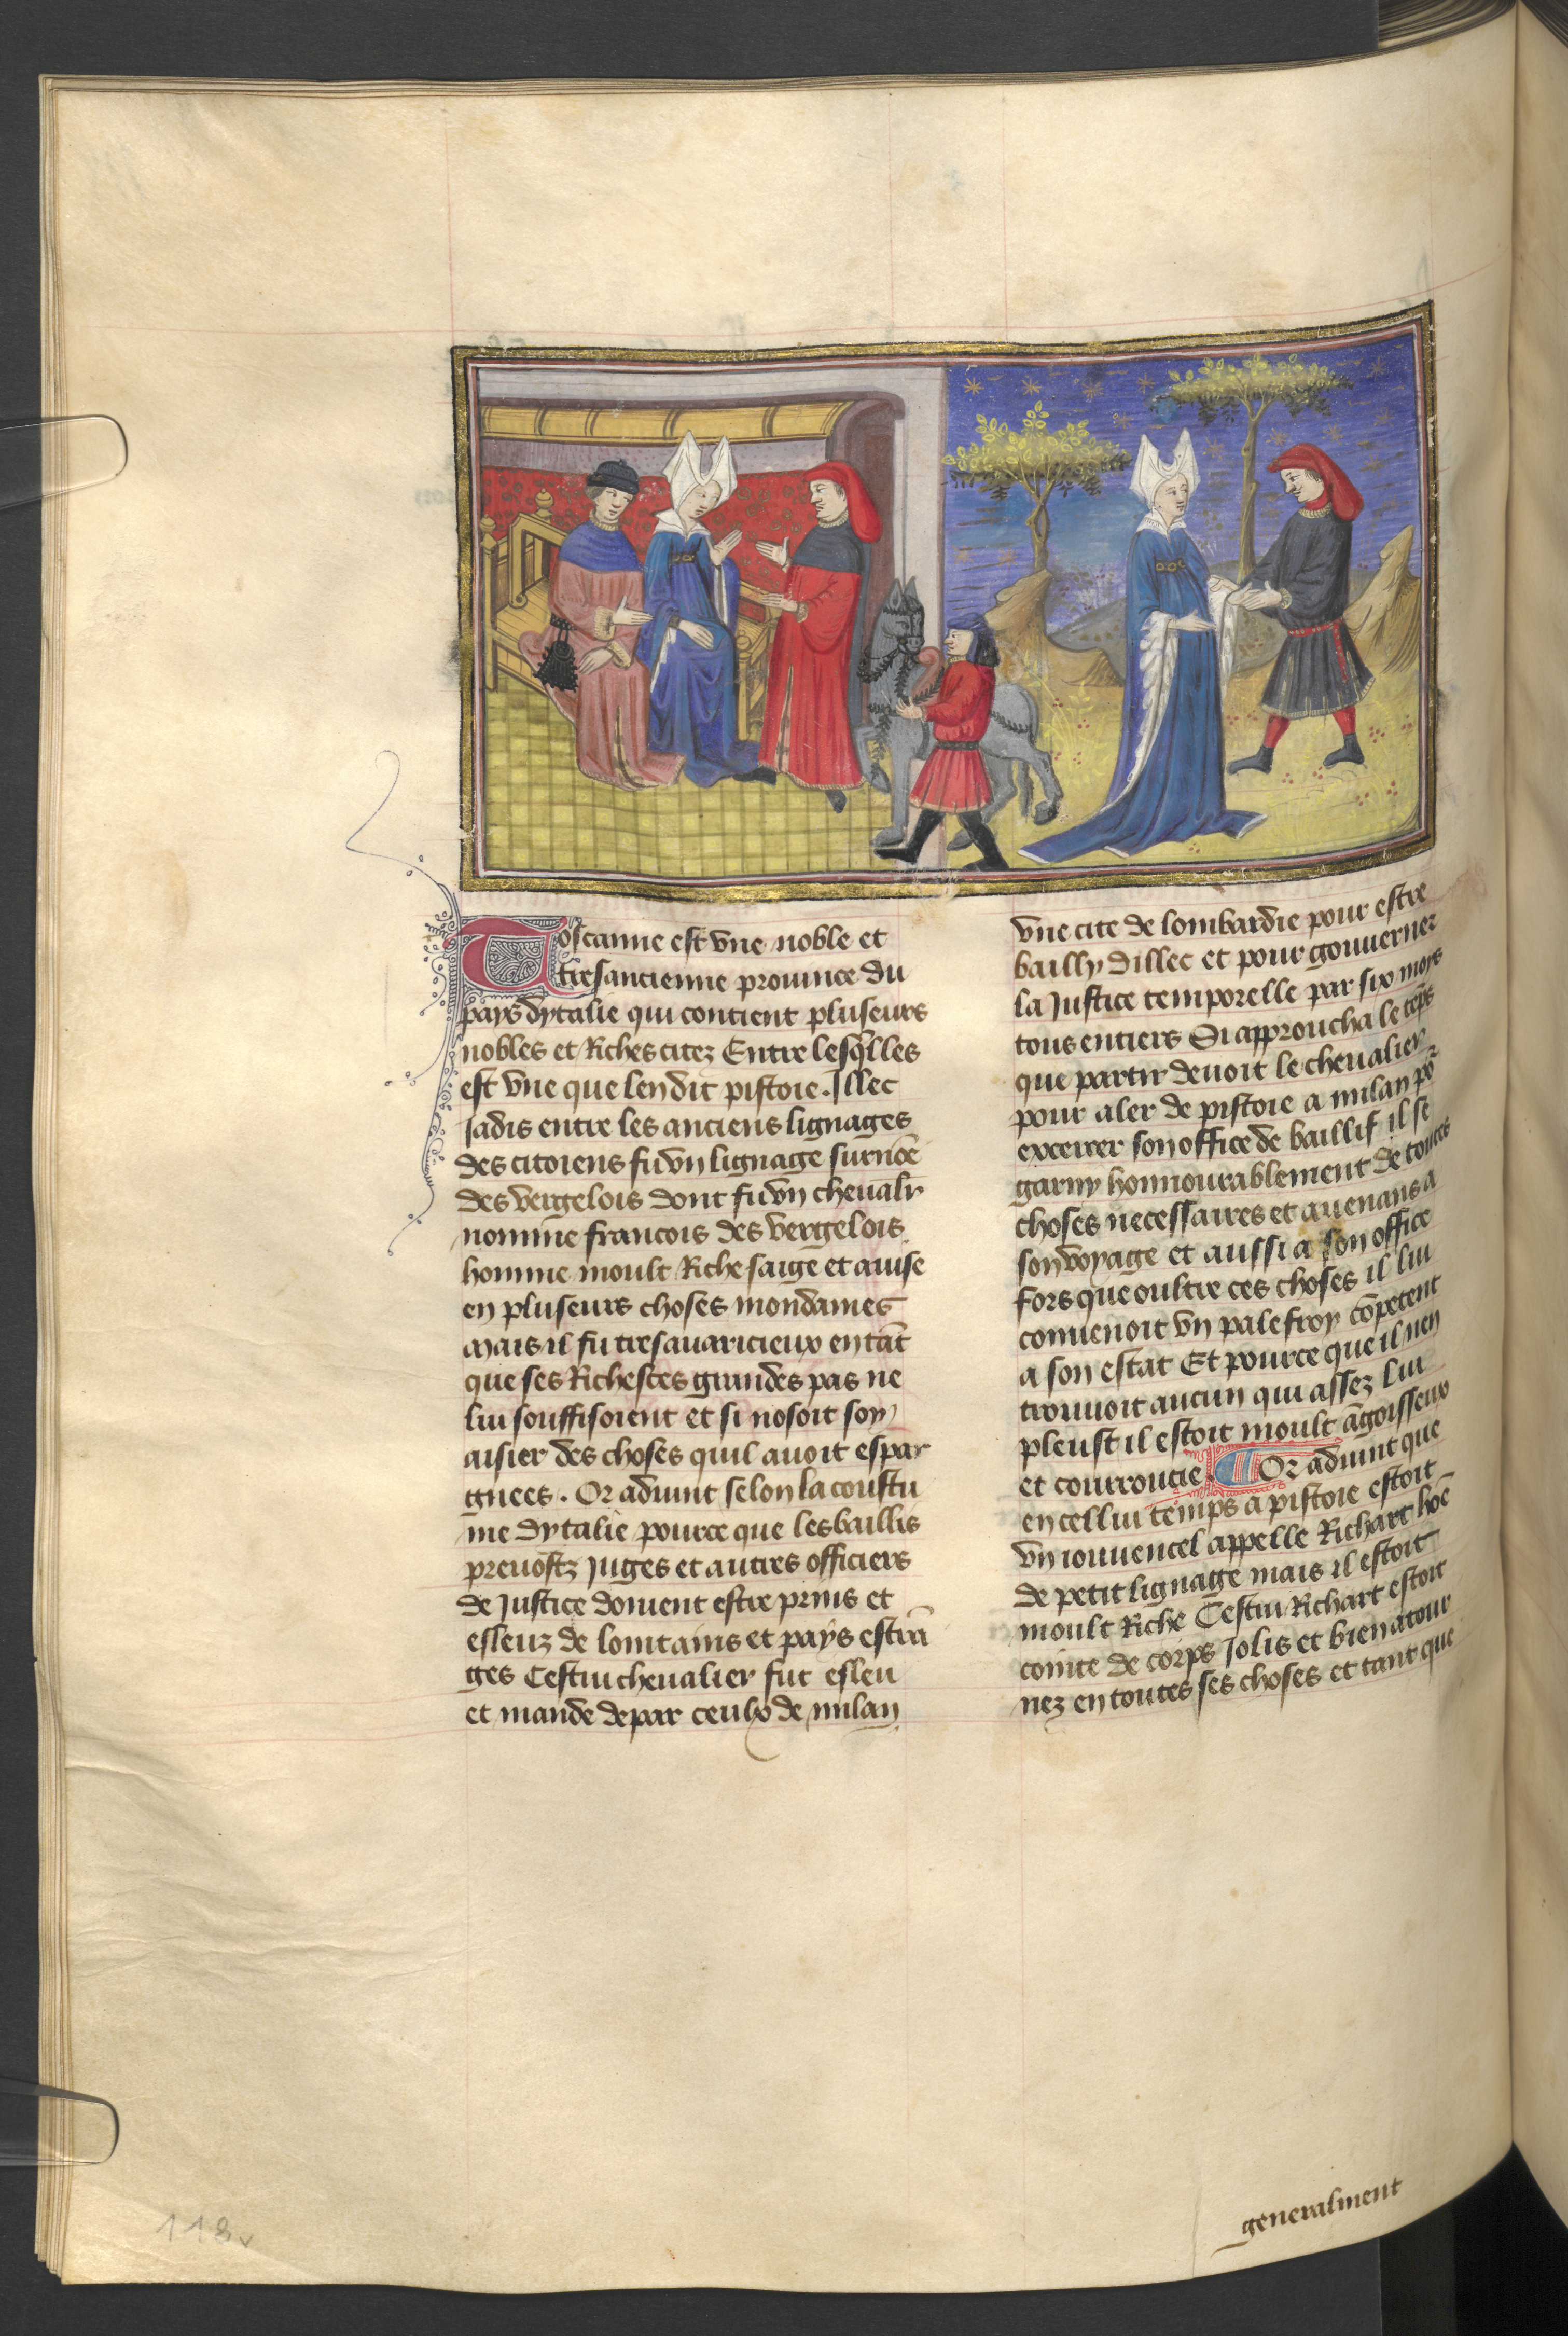 Toscanne est vne noble et
tresancienne prouince du
pays dytalie qui contient pluseurs
nobles et Riches citez Entre lesq̃lles
est vne que len dit pistoie. Illec
Jadis entre les anciens lignages
des citoiens fu vn lignage surnõe
des vergelois dont fu vn cheualr
nomme francois des vergelois
homme moult Riche saige et auise
en pluseurs choses mondaines
mais il fu tresauaricieux en tãt
que ses Richesces grandes pas ne
lui souffisoient et si nosoit soy
aisier des choses quil auoit espar
gnees. Or aduint selon la coustu
me dytalie pource que les baillis
preuostz Juges et autres officiers
de Justice doiuent estre prins et
esleuz de lointains et pays estrã
ges Cestui cheualier fut esleu
et mande de par ceulx de milan
vne cite de lombardie pour estre
bailly dillec et pour gouuerner
la Justice temporelle par six moys
tous entiers Si approucha le tẽps
que partir deuoit le cheualier
pour aler de pistoie a milan po᷑
excercer son office de baillif il se
garny honnourablement de toutes
choses necessaires et auenans a
son voyage et aussi a son office
fors que oultre ces choses il lui
conuenoit vn palefroy cõpetent
a son estat Et pource que il nen
trouuoit aucun qui assez lui
pleust il estoit moult ãgoisseux
et courroucie. Or aduint que
en cellui temps a pistoie estoit
vn iouuencel appelle Richart hõe
de petit lignage mais il estoit
moult Riche Cestui Richart estoit
cointe de corps Jolis et bien atour
nez en toutes ses choses et tant que
generalment
118v